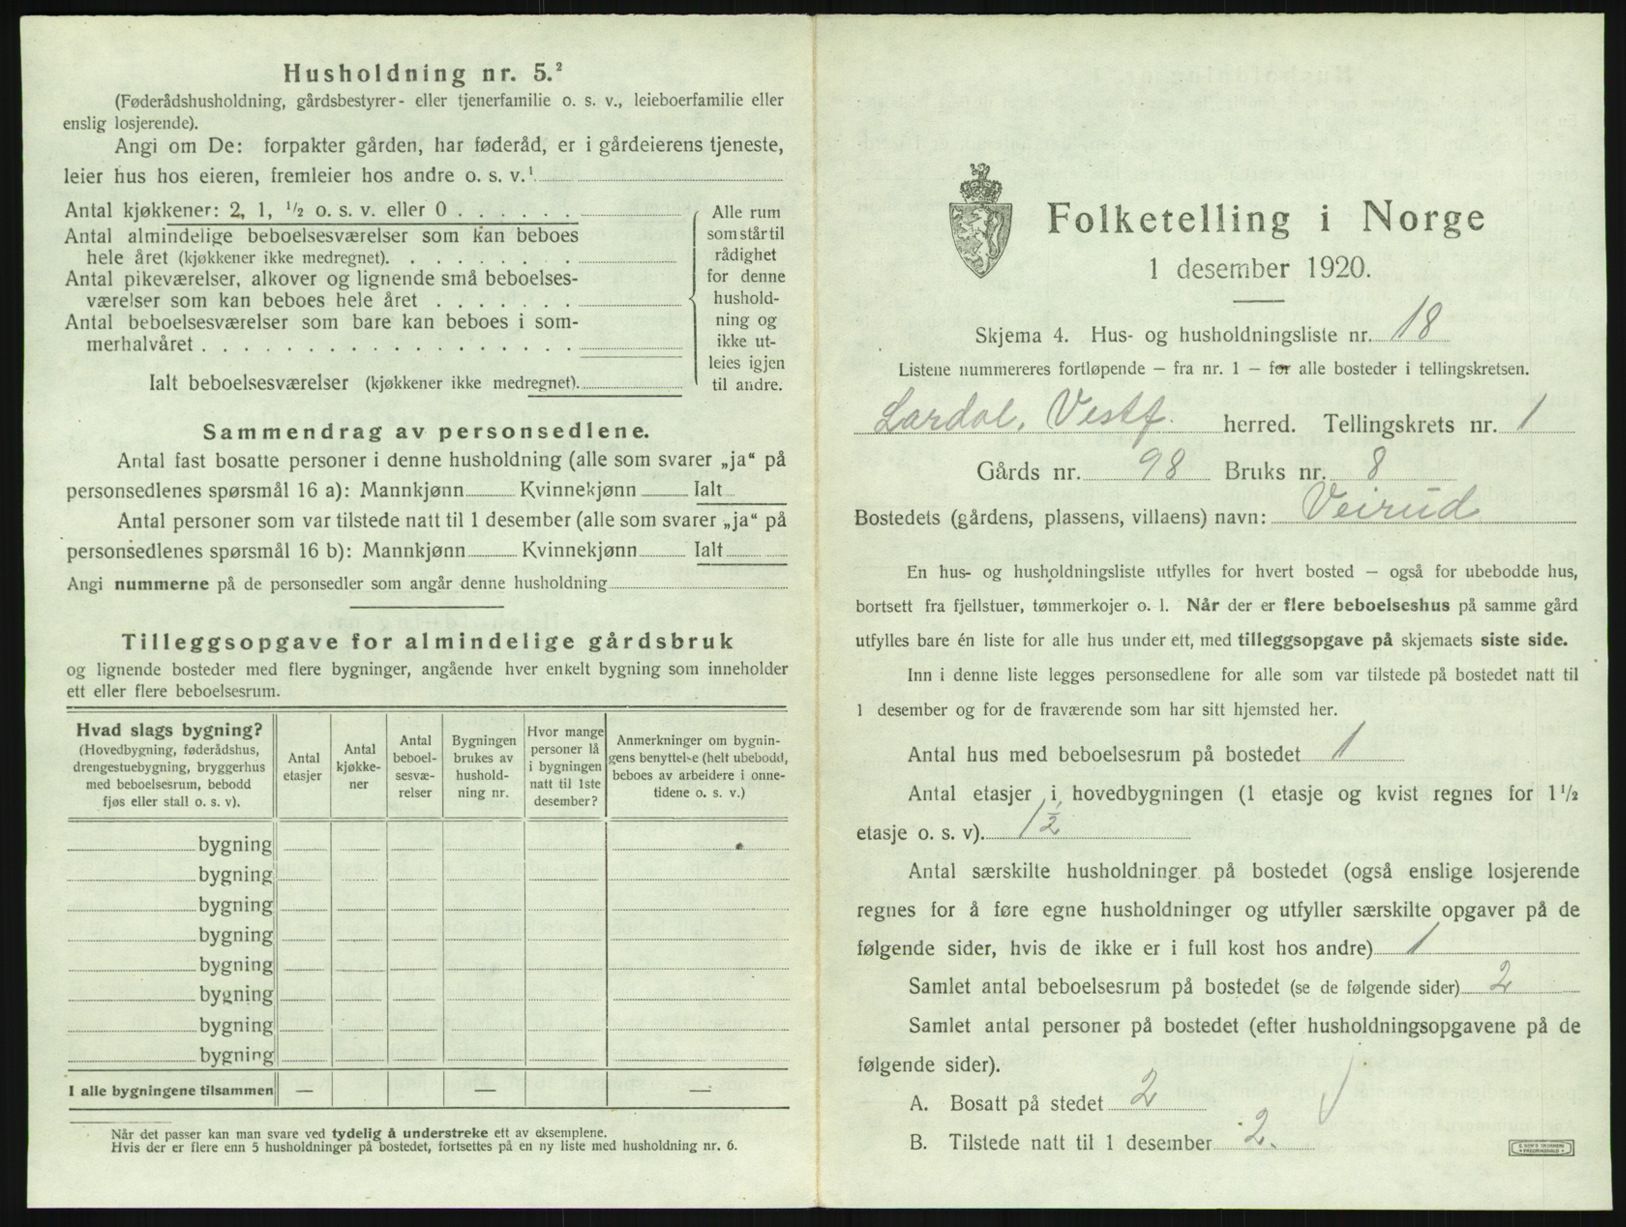 Husholdning nr. 5.²
(Føderådshusholdning, gårdsbestyrer- eller tjenerfamilie o. s. v., leieboerfamilie eller
enslig losjerende).
Angi om De: forpakter gården, har føderåd, er i gårdeierens tjeneste,
leier hus hos eieren, fremleier hos andre o. s. v.¹
Antal kjøkkener: 2, 1, ½ o. s. v. eller 0 . . . . . .
Antal almindelige beboelsesværelser som kan beboes
hele året (kjøkkener ikke medregnet). . . . . . . .
Antal pikeværelser, alkover og lignende små beboelses-
værelser som kan beboes hele året . . . . . . .
Antal beboelsesværelser som bare kan beboes i som-
merhalvåret . . . . . . . . . . . . . . . . . .
Ialt beboelsesværelser (kjøkkener ikke medregnet).
Alle rum
som står til
rådighet
for denne
hushold-
ning og
ikke ut-
leies igjen
til andre.
Sammendrag av personsedlene.
Antal fast bosatte personer i denne husholdning (alle som svarer „ja“ på
personsedlenes spørsmål 16 a): Mannkjønn Kvinnekjønn Ialt
Antal personer som var tilstede natt til 1 desember (alle som svarer „ja“ på
personsedlenes spørsmål 16 b): Mannkjønn Kvinnekjønn Ialt
Angi nummerne på de personsedler som angår denne husholdning
Tilleggsopgave for almindelige gårdsbruk
og lignende bosteder med flere bygninger, angående hver enkelt bygning som inneholder
ett eller flere beboelsesrum.
Hvad slags bygning?
(Hovedbygning, føderådshus,
drengestuebygning, bryggerhus
med beboelsesrum, bebodd
fjøs eller stall o. s. v).
Antal
etasjer
Antal
kjøkke-
ner
Antal
beboel-
sesvæ-
relser
Bygningen
brukes av
hushold-
ning nr.
Hvor mange
personer lå
i bygningen
natt til 1ste
desember?
Anmerkninger om bygnin-
gens benyttelse (helt ubebodd,
beboes av arbeidere i onne-
tidene o. s. v.)
bygning
bygning
bygning
bygning
bygning
bygning
bygning
bygning
I alle bygningene tilsammen — — —
Når det passer kan man svare ved tydelig å understreke ett av eksemplene.
Hvis der er flere enn 5 husholdninger på bostedet, fortsettes på en ny liste med husholdning nr. 6.
Folketelling i Norge
1 desember 1920.
Skjema 4. Hus- og husholdningsliste nr. 18
Listene nummereres fortløpende — fra nr. 1 — for alle bosteder i tellingskretsen.
Lardal, Vestf. herred. Tellingskrets nr. 1
Gårds nr. 98 Bruks nr. 8
Bostedets (gårdens, plassens, villaens) navn: Veirud
En hus- og husholdningsliste utfylles for hvert bosted — også for ubebodde hus,
bortsett fra fjellstuer, tømmerkojer o. l. Når der er flere beboelseshus på samme gård
utfylles bare én liste for alle hus under ett, med tilleggsopgave på skjemaets siste side.
Inn i denne liste legges personsedlene for alle som var tilstede på bostedet natt til
1 desember og for de fraværende som har sitt hjemsted her.
Antal hus med beboelsesrum på bostedet 1
Antal etasjer i hovedbygningen (1 etasje og kvist regnes for 1½
etasje o. s. v). 1½
Antal særskilte husholdninger på bostedet (også enslige losjerende
regnes for å føre egne husholdninger og utfyller særskilte opgaver på de
følgende sider, hvis de ikke er i full kost hos andre) 1
Samlet antal beboelsesrum på bostedet (se de følgende sider) 2
Samlet antal personer på bostedet (efter husholdningsopgavene på de
følgende sider).
A. Bosatt på stedet 2
B. Tilstede natt til 1 desember 2.